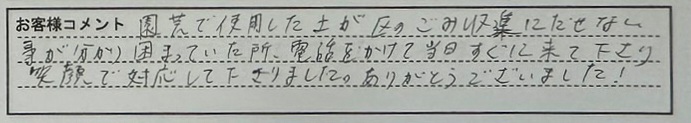 お客様コメント 園芸で使用した土が区のごみ収集にだせない
事が分かり困まっていた所、電話をかけて当日すぐに来て下さり
笑顔で対応して下さりました。ありがとうございました!